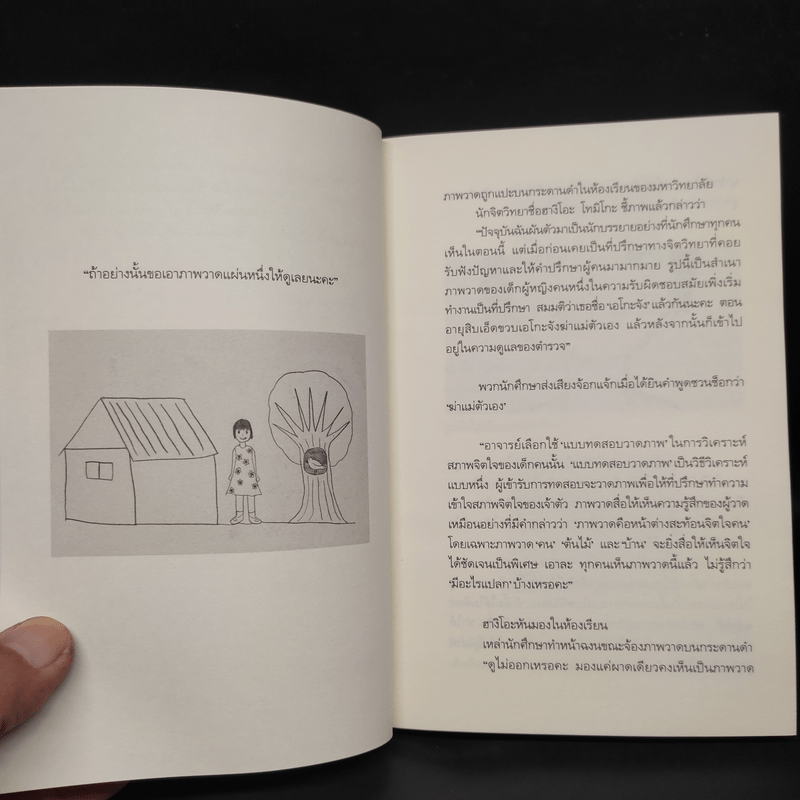 “ถ้าอย่างนั้นขอเอาภาพวาดแผ่นหนึ่งให้ดูเลยนะคะ”
ภาพวาดถูกแปะบนกระดานดำในห้องเรียนของมหาวิทยาลัย
นักจิตวิทยาชื่อฮางิโอะ โทมิโกะ ชี้ภาพแล้วกล่าวว่า
“ปัจจุบันฉันผันตัวมาเป็นนักบรรยายอย่างที่นักศึกษาทุกคน
เห็นในตอนนี้ แต่เมื่อก่อนเคยเป็นที่ปรึกษาทางจิตวิทยาที่คอย
รับฟังปัญหาและให้คำปรึกษาผู้คนมามากมาย รูปนี้เป็นสำเนา
ภาพวาดของเด็กผู้หญิงคนหนึ่งในความรับผิดชอบสมัยเพิ่งเริ่ม
ทำงานเป็นที่ปรึกษา สมมติว่าเธอชื่อ ‘เอโกะจัง’ แล้วกันนะคะ ตอน
อายุสิบเอ็ดขวบเอโกะจังฆ่าแม่ตัวเอง แล้วหลังจากนั้นก็เข้าไป
อยู่ในความดูแลของตำรวจ”
พวกนักศึกษาส่งเสียงจ้อกแจ้กเมื่อได้ยินคำพูดชวนช็อกว่า
‘ฆ่าแม่ตัวเอง’
“อาจารย์เลือกใช้ ‘แบบทดสอบวาดภาพ’ ในการวิเคราะห์
สภาพจิตใจของเด็กคนนั้น ‘แบบทดสอบวาดภาพ’ เป็นวิธีวิเคราะห์
แบบหนึ่ง ผู้เข้ารับการทดสอบจะวาดภาพเพื่อให้ที่ปรึกษาทำความ
เข้าใจสภาพจิตใจของเจ้าตัว ภาพวาดสื่อให้เห็นความรู้สึกของผู้วาด
เหมือนอย่างที่มีคำกล่าวว่า ‘ภาพวาดคือหน้าต่างสะท้อนจิตใจคน’
โดยเฉพาะภาพวาด ‘คน’ ‘ต้นไม้’ และ ‘บ้าน’ จะยิ่งสื่อให้เห็นจิตใจ
ได้ชัดเจนเป็นพิเศษ เอาละ ทุกคนเห็นภาพวาดนี้แล้ว ไม่รู้สึกว่า
‘มีอะไรแปลก’ บ้างเหรอคะ”
ฮางิโอะหันมองในห้องเรียน
เหล่านักศึกษาทำหน้าฉงนขณะจ้องภาพวาดบนกระดานดำ
“ดูไม่ออกเหรอคะ มองแค่ผาดเดียวคงเห็นเป็นภาพวาด